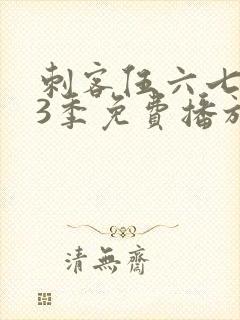 刺客伍六七
3季免費播放
清無齋